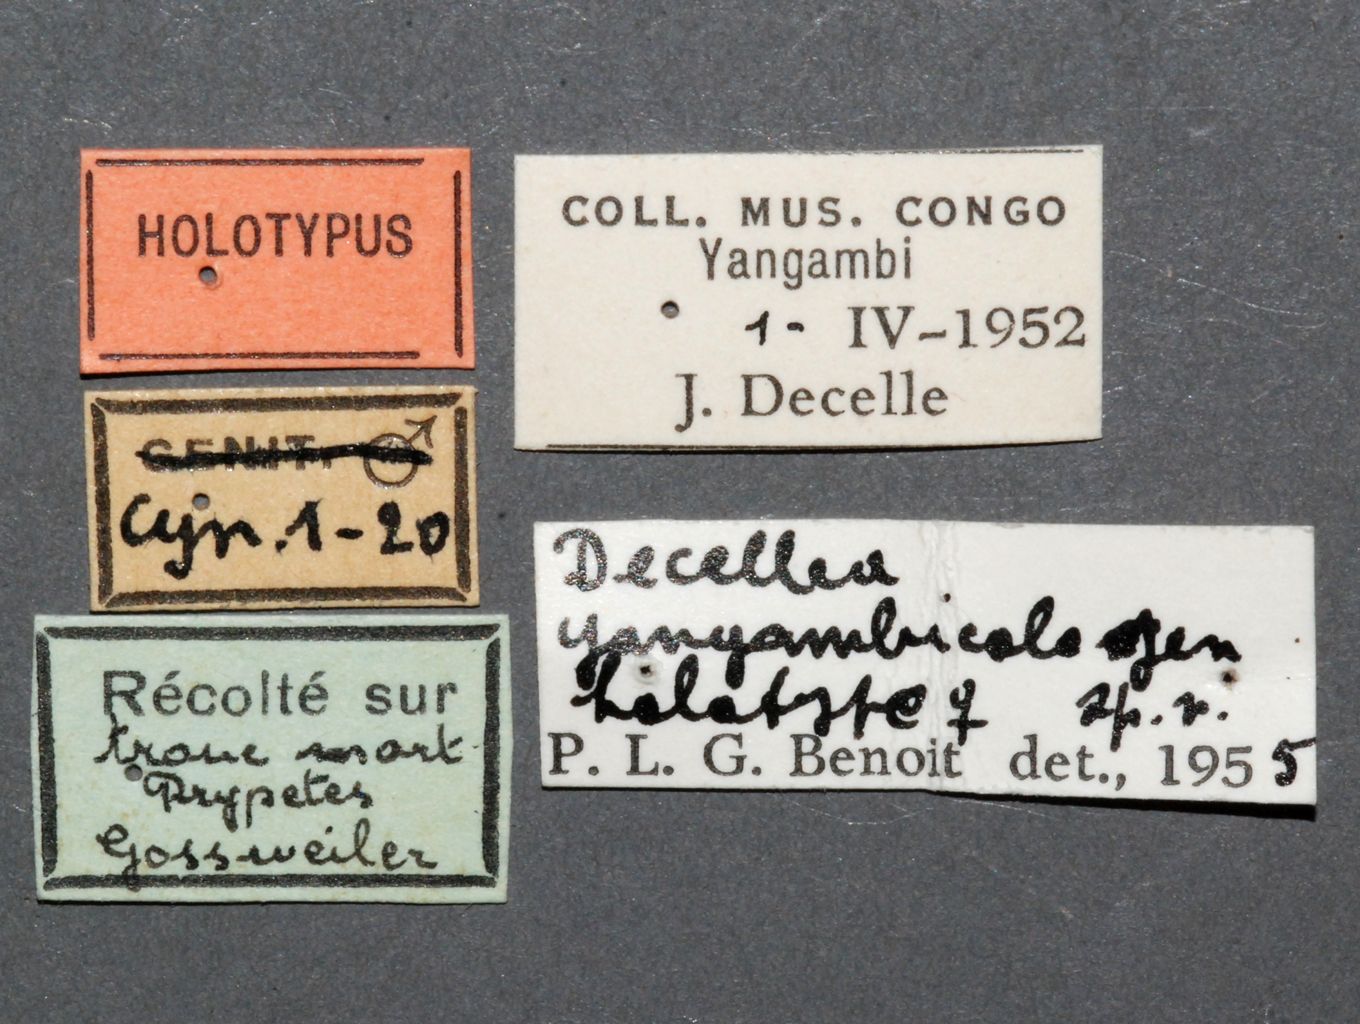 HOLOTYPUS
GENIT. ♂
Cyn. 1-20
Récolté sur
tronc mort
Drypetes
Gossweiler
COLL. MUS. CONGO
Yangambi
1- IV-1952
J. Decelle
Decellea
yangambicola gen
holotype ♀ sp. n.
P. L. G. Benoit det., 1955